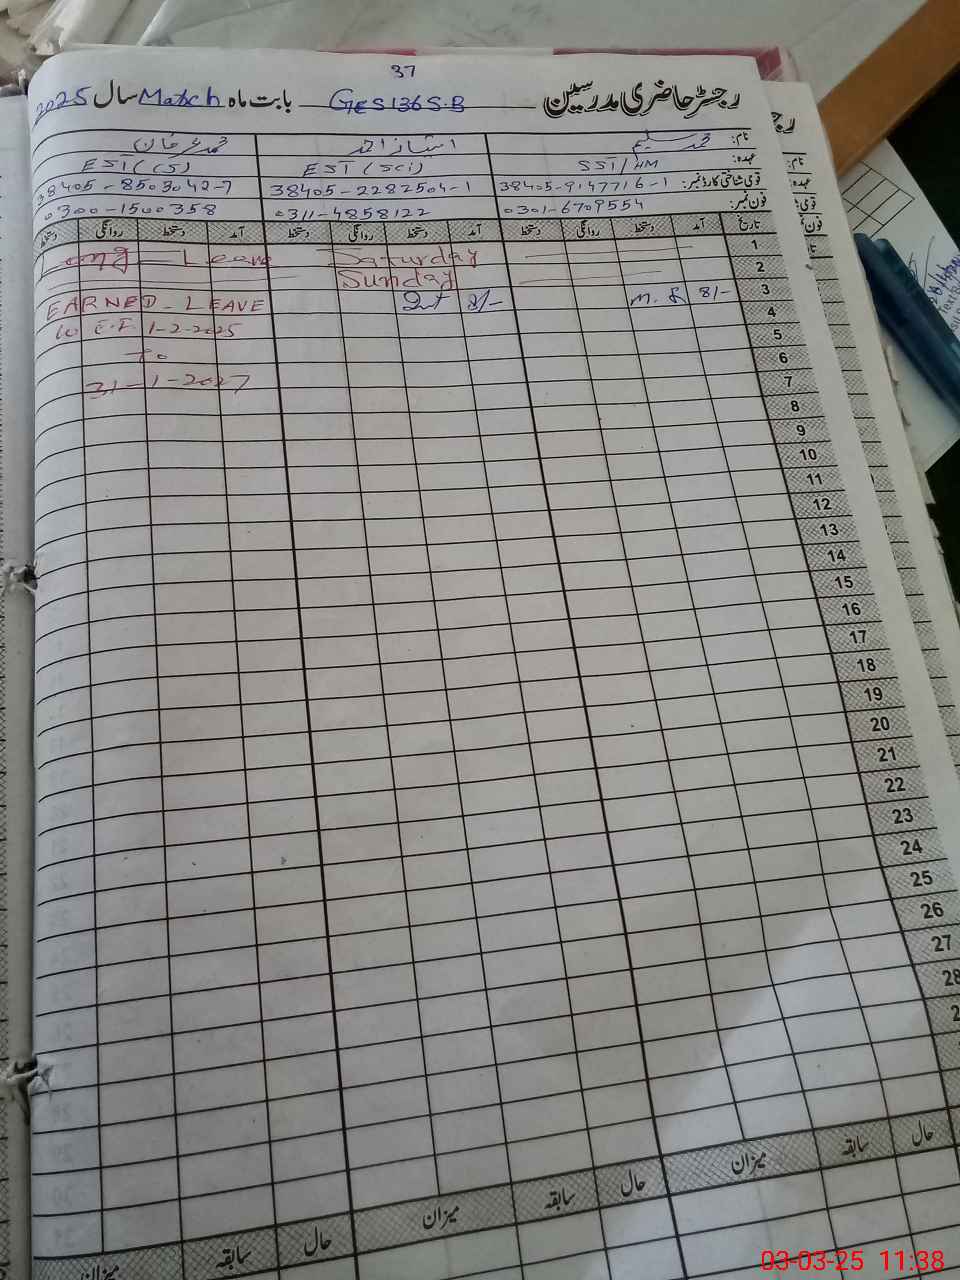 37
رجسٹر حاضری مدرسین GES 136 S.B بابت ماہ March سال 2025
نام: محمد سلیم امتیاز احمد محمد عرفان
عہدہ: SST/HM EST (Sci) EST (CS)
قومی شناختی کارڈ نمبر: 38405-9147716-1 38405-2282504-1 38405-8503042-7
فون نمبر: 0301-6709554 0311-4858122 0300-1500358
تاریخ آمد دستخط روانگی دستخط آمد دستخط روانگی دستخط آمد دستخط روانگی دستخط
1 Saturday Long Leave
2 Sunday
3 8/- 8/- EARNED-LEAVE
4 W.E.F. 1-2-2025
5 To
6 31-1-2027
7
8
9
10
11
12
13
14
15
16
17
18
19
20
21
22
23
24
25
26
27
28
حال سابقہ میزان حال سابقہ میزان حال سابقہ میزان
03-03-25 11:38